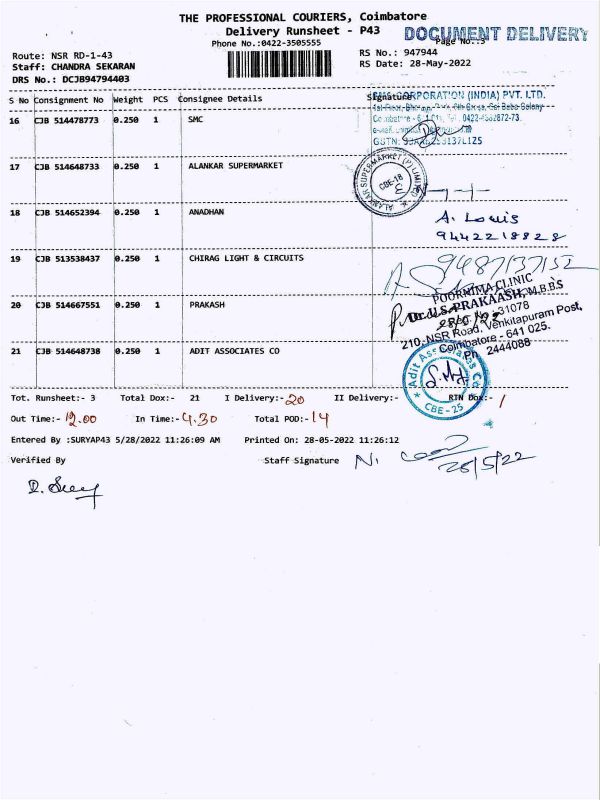 THE PROFESSIONAL COURIERS, Coimbatore
Delivery Runsheet - P43
DOCUMENT DELIVERY
Phone No.:0422-3505555
Page No.:3
Route: NSR RD-1-43
RS No.: 947944
Staff: CHANDRA SEKARAN
RS Date: 28-May-2022
DRS No.: DCJB94794403
S No Consignment No Weight PCS Consignee Details Signature
16 CJB 514478773 0.250 1 SMC
CORPORATION (INDIA) PVT. LTD.
17 CJB 514648733 0.250 1 ALANKAR SUPERMARKET
ALANKAR SUPERMARKET (P) LIMITED
CBE-18
18 CJB 514652394 0.250 1 ANADHAN
A. Louis
9442218828
19 CJB 513538437 0.250 1 CHIRAG LIGHT & CIRCUITS
9487137152
20 CJB 514667551 0.250 1 PRAKASH
POORNIMA CLINIC
Dr. U.S. PRAKAASH, M.B.B.S
Reg. No. 31078
210, NSR Road, Venkitapuram Post,
Coimbatore - 641 025.
Ph. 2444088
21 CJB 514648738 0.250 1 ADIT ASSOCIATES CO
Adit Associates Co
CBE - 25
Tot. Runsheet:- 3 Total Dox:- 21 I Delivery:- 20 II Delivery:- RTN Dox:- 1
Out Time:- 12.00 In Time:- 4.30 Total POD:- 14
Entered By :SURYAP43 5/28/2022 11:26:09 AM Printed On: 28-05-2022 11:26:12
Verified By Staff Signature
28/5/22